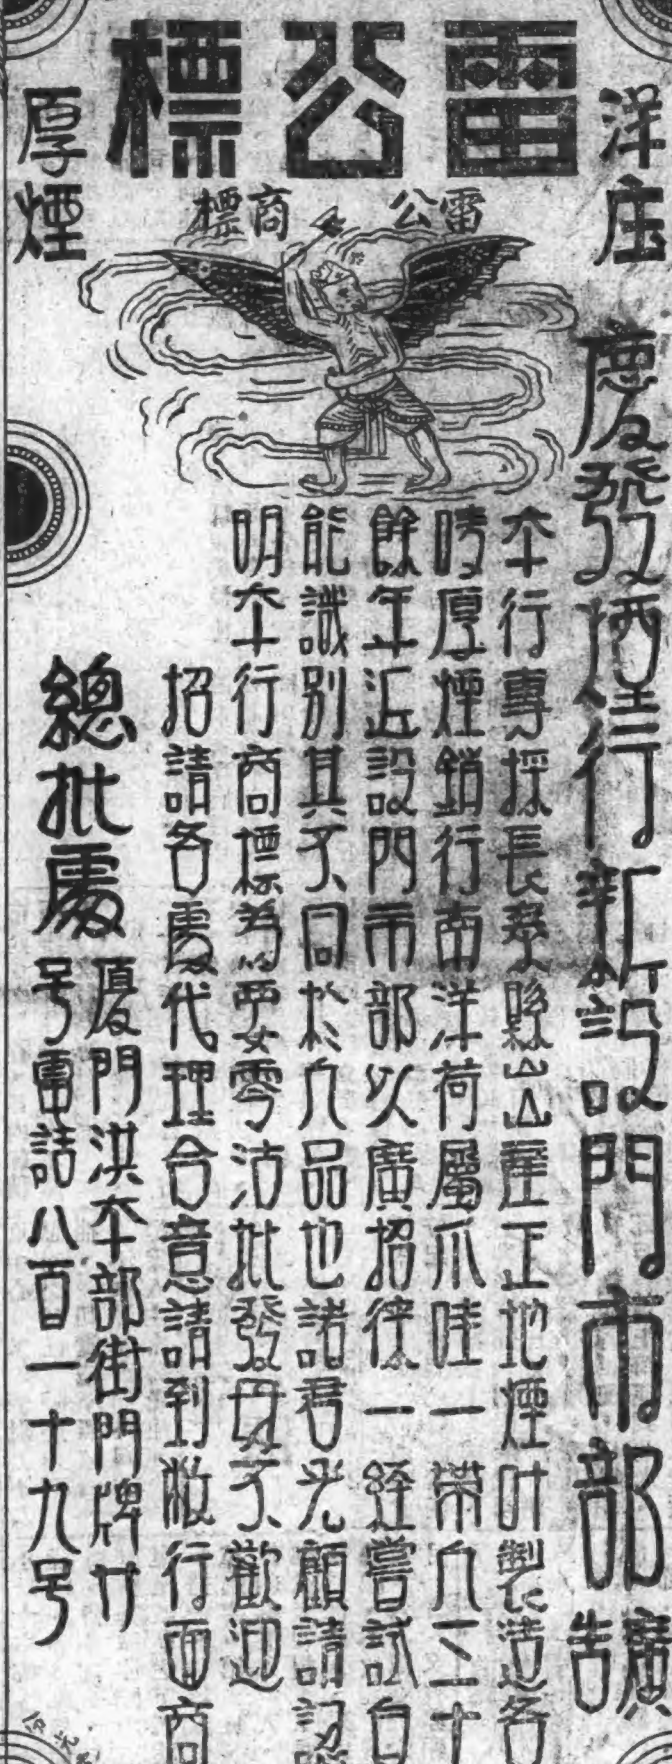 雷公標
洋庄
厚煙
雷公商標
慶發煙行新設門市部廣告
本行專採長泰縣出產正地煙叶製造各
時厚煙銷行南洋荷屬爪哇一帶凡二十
餘年近設門市部以廣招徠一經嘗試自
能識別其不同於凡品也諸君光顧請認
明本行商標為要零沽批發毋不歡迎
招請各處代理合意請到敝行面商
總批處
廈門洪本部街門牌廿
号電話八百一十九号